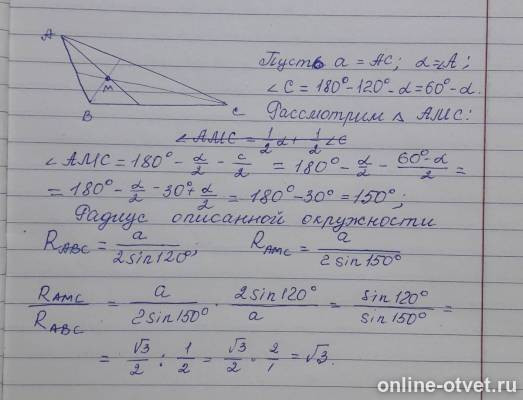 A
M
B
C
Пусть a = AC; α = ∠A;
∠C = 180° - 120° - α = 60° - α.
Рассмотрим △ AMC:
∠AMC = 1/2 α + 1/2 ∠C
∠AMC = 180° - α/2 - C/2 = 180° - α/2 - (60° - α)/2 =
= 180° - α/2 - 30° + α/2 = 180° - 30° = 150°;
Радиус описанной окружности
R_ABC = a/(2 sin 120°); R_AMC = a/(2 sin 150°)
R_AMC/R_ABC = a/(2 sin 150°) · (2 sin 120°)/a = sin 120°/sin 150° =
= √3/2 : 1/2 = √3/2 · 2/1 = √3.
online-otvet.ru